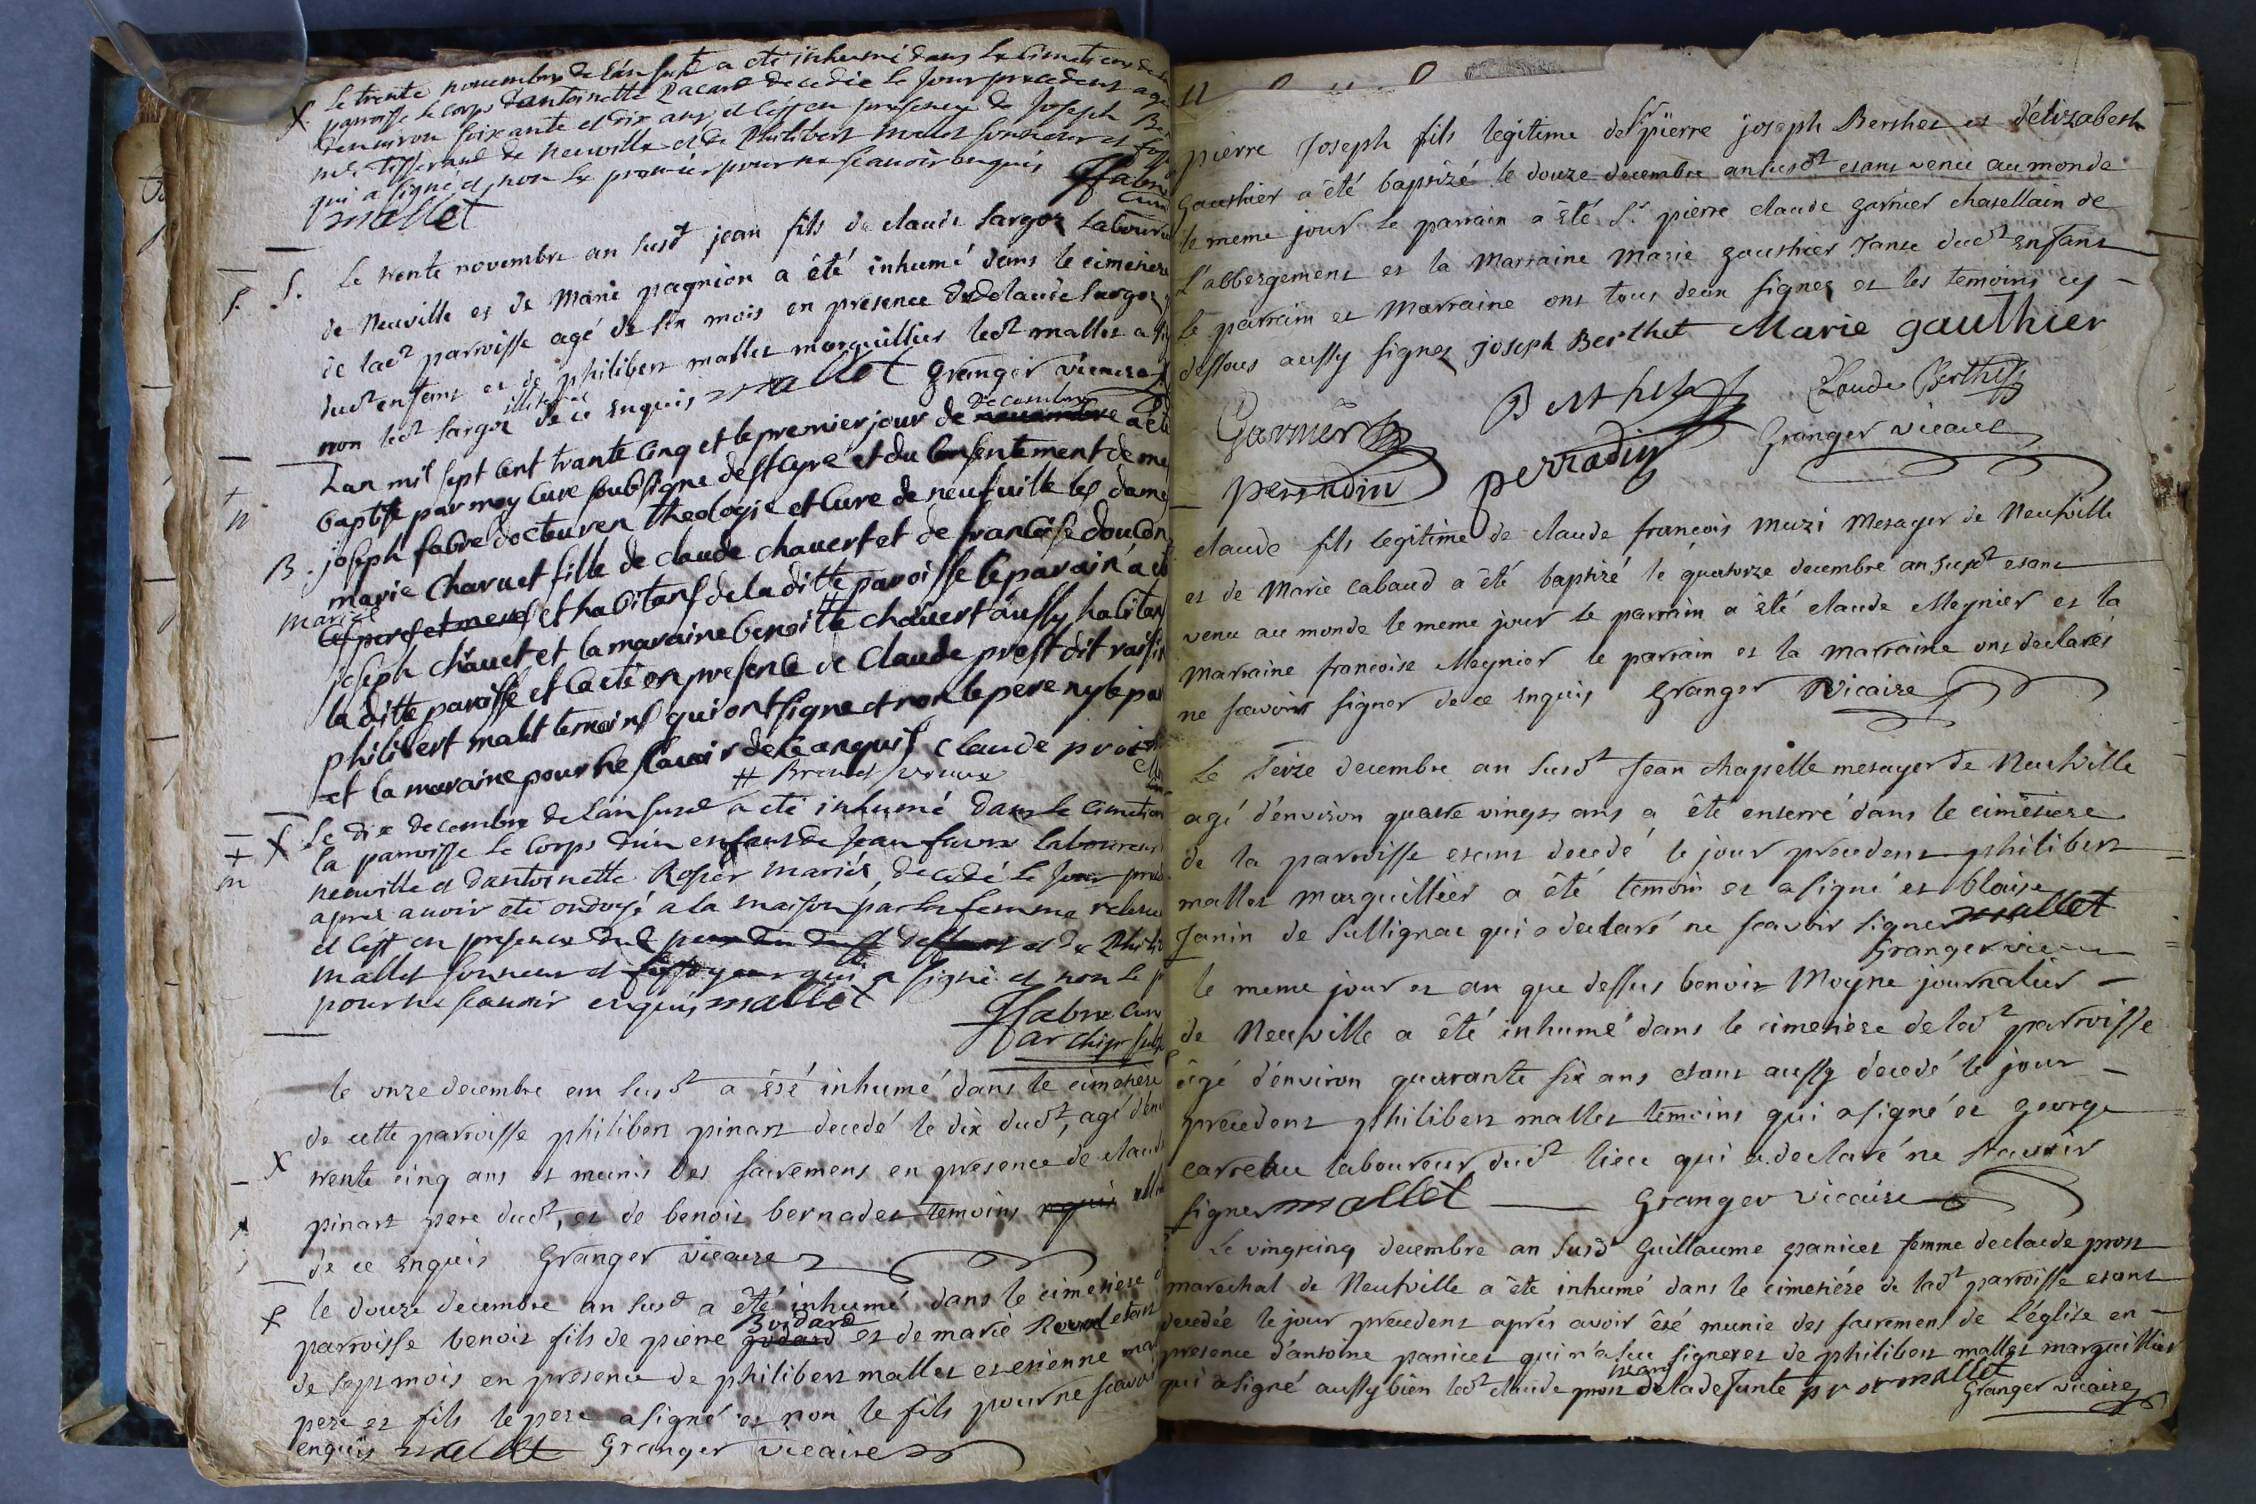 Le trente novembre de l'an susd a eté inhumé dans le cimetiere de la
paroisse le corps d'antoinette Pacard decedée le jour precedent agé
denviron soixante et dix ans, et c'est en presence de Joseph
tisserand de neuville et de Philibert mallet sonneur et
qui a signé et non le premier pour ne scavoir enquis ffabre
mallet curé
S. Le trente novembre an susdt jean fils de claude sargoz laboureur
de Neuville et de Marie pagnion a êté inhumé dans le cimetiere
de ladt parroisse agé de six mois en presence dud claude sargoz
dudt enfant et de philibert mallet marguillier ledt mallet a
non ledt sargoz illiteré de ce enquis mallet Granger vicaire
Lan mil sept cent trante cinq et le premier jour de novembre decembre a eté
baptisé par moy curé soubsigné de st Cyre et du consentement de me
joseph fabre docteur en theologie et cure de neufville les dame
B. marie Charvet fille de claude chavert et de francoise doucon
mariés les peres et meres et habitans de la ditte paroisse le parain a eté
joseph chavet et la maraine benoitte chavert aussy habitan
la ditte paroisse et la eté en presence de claude prost dit raisi
philibert malet temoins qui ont signe et non le pere ny le par
et la maraine pour ne scavoir de ce anquis claude prost
# Brevet
X Le dix decembre de l'an susd a eté inhumé dans le cimetiere
la parroisse le corps d'un enfant de Jean favre laboureur
neuville et d'antoinette Rosier mariés, decedé le jour prece
apres avoir eté ondoyé a la maison par la femme
et c'est en presence dud et de Phili
mallet sonneur et fossoyeur qui a signé et non le p
pour ne scavoir enquis mallet
ffabre curé
archipr
le onze decembre an susdt a êté inhumé dans le cimetiere
de cette parroisse philibert pinart decedé le dix dudt, agé d'env
X trente cinq ans et munis des sacremens en presence de claude
pinart pere dudt, et de benoit bernadet temoins
de ce enquis Granger vicaire
X le douze decembre an susd a êté inhumé dans le cimetiere d
parroisse benoit fils de pierre godard Boidard et de marie
de sept mois en presence de philibert mallet et etienne mal
pere et fils le pere a signé et non le fils pour ne scavoi
enquis mallet Granger vicaire
pierre Joseph fils legitime de Sr pierre joseph Berthet et d'elizabeth
gauthier a êté baptizé le douze decembre an susdt etant venu au monde
le meme jour le parrain a êté Sr pierre claude garnier chatellain de
L'abbergement et la Marraine Marie gauthier Tante dudt enfant
le parrain et Marraine ont tous deux signez et les temoins cy
dessous aussy signez joseph Berthet Marie gauthier
Garnier Berthet Claude Berthet
perradin perradin Granger vicaire
claude fils legitime de claude francois Muzi Metayer de Neufville
et de Marie Cabaud a êté baptizé le quatorze decembre an susdt etant
venu au monde le meme jour le parrain a êté claude Meynier et la
Marraine francoise Meynier le parrain et la marraine ont declarés
ne scavoir signer de ce enquis Granger Vicaire
Le seize decembre an susdt Jean chapelle metayer de Neufville
agé d'environ quatre vingts ans a êté enterré dans le cimetiere
de la parroisse etant decedé le jour precedent philibert
mallet marguillier a êté temoin et a signé et blaise
Janin de Sullignac qui a declaré ne scavoir signer mallet
Granger vicaire
le meme jour et an que dessus benoit Moyne journalier
de Neufville a êté inhumé dans le cimetiere de ladt parroisse
âgé d'environ quarante six ans etant aussy decedé le jour
precedent philibert mallet temoins qui a signé et george
carreau laboureur dudt lieu qui a declaré ne scavoir
signer mallet Granger vicaire
Le vingt cinq decembre an susdt Guillaume panicet femme de claude prost
marechal de Neufville a êté inhumé dans le cimetiére de ladt parroisse etant
decedée le jour precedent aprés avoir êté munie des sacremens de L'église en
presence d'antoine panicet qui n'a sceu signer et de philibert mallet marguillier
qui a signé aussy bien ledt claude prost mary de la defunte prost mallet
Granger vicaire